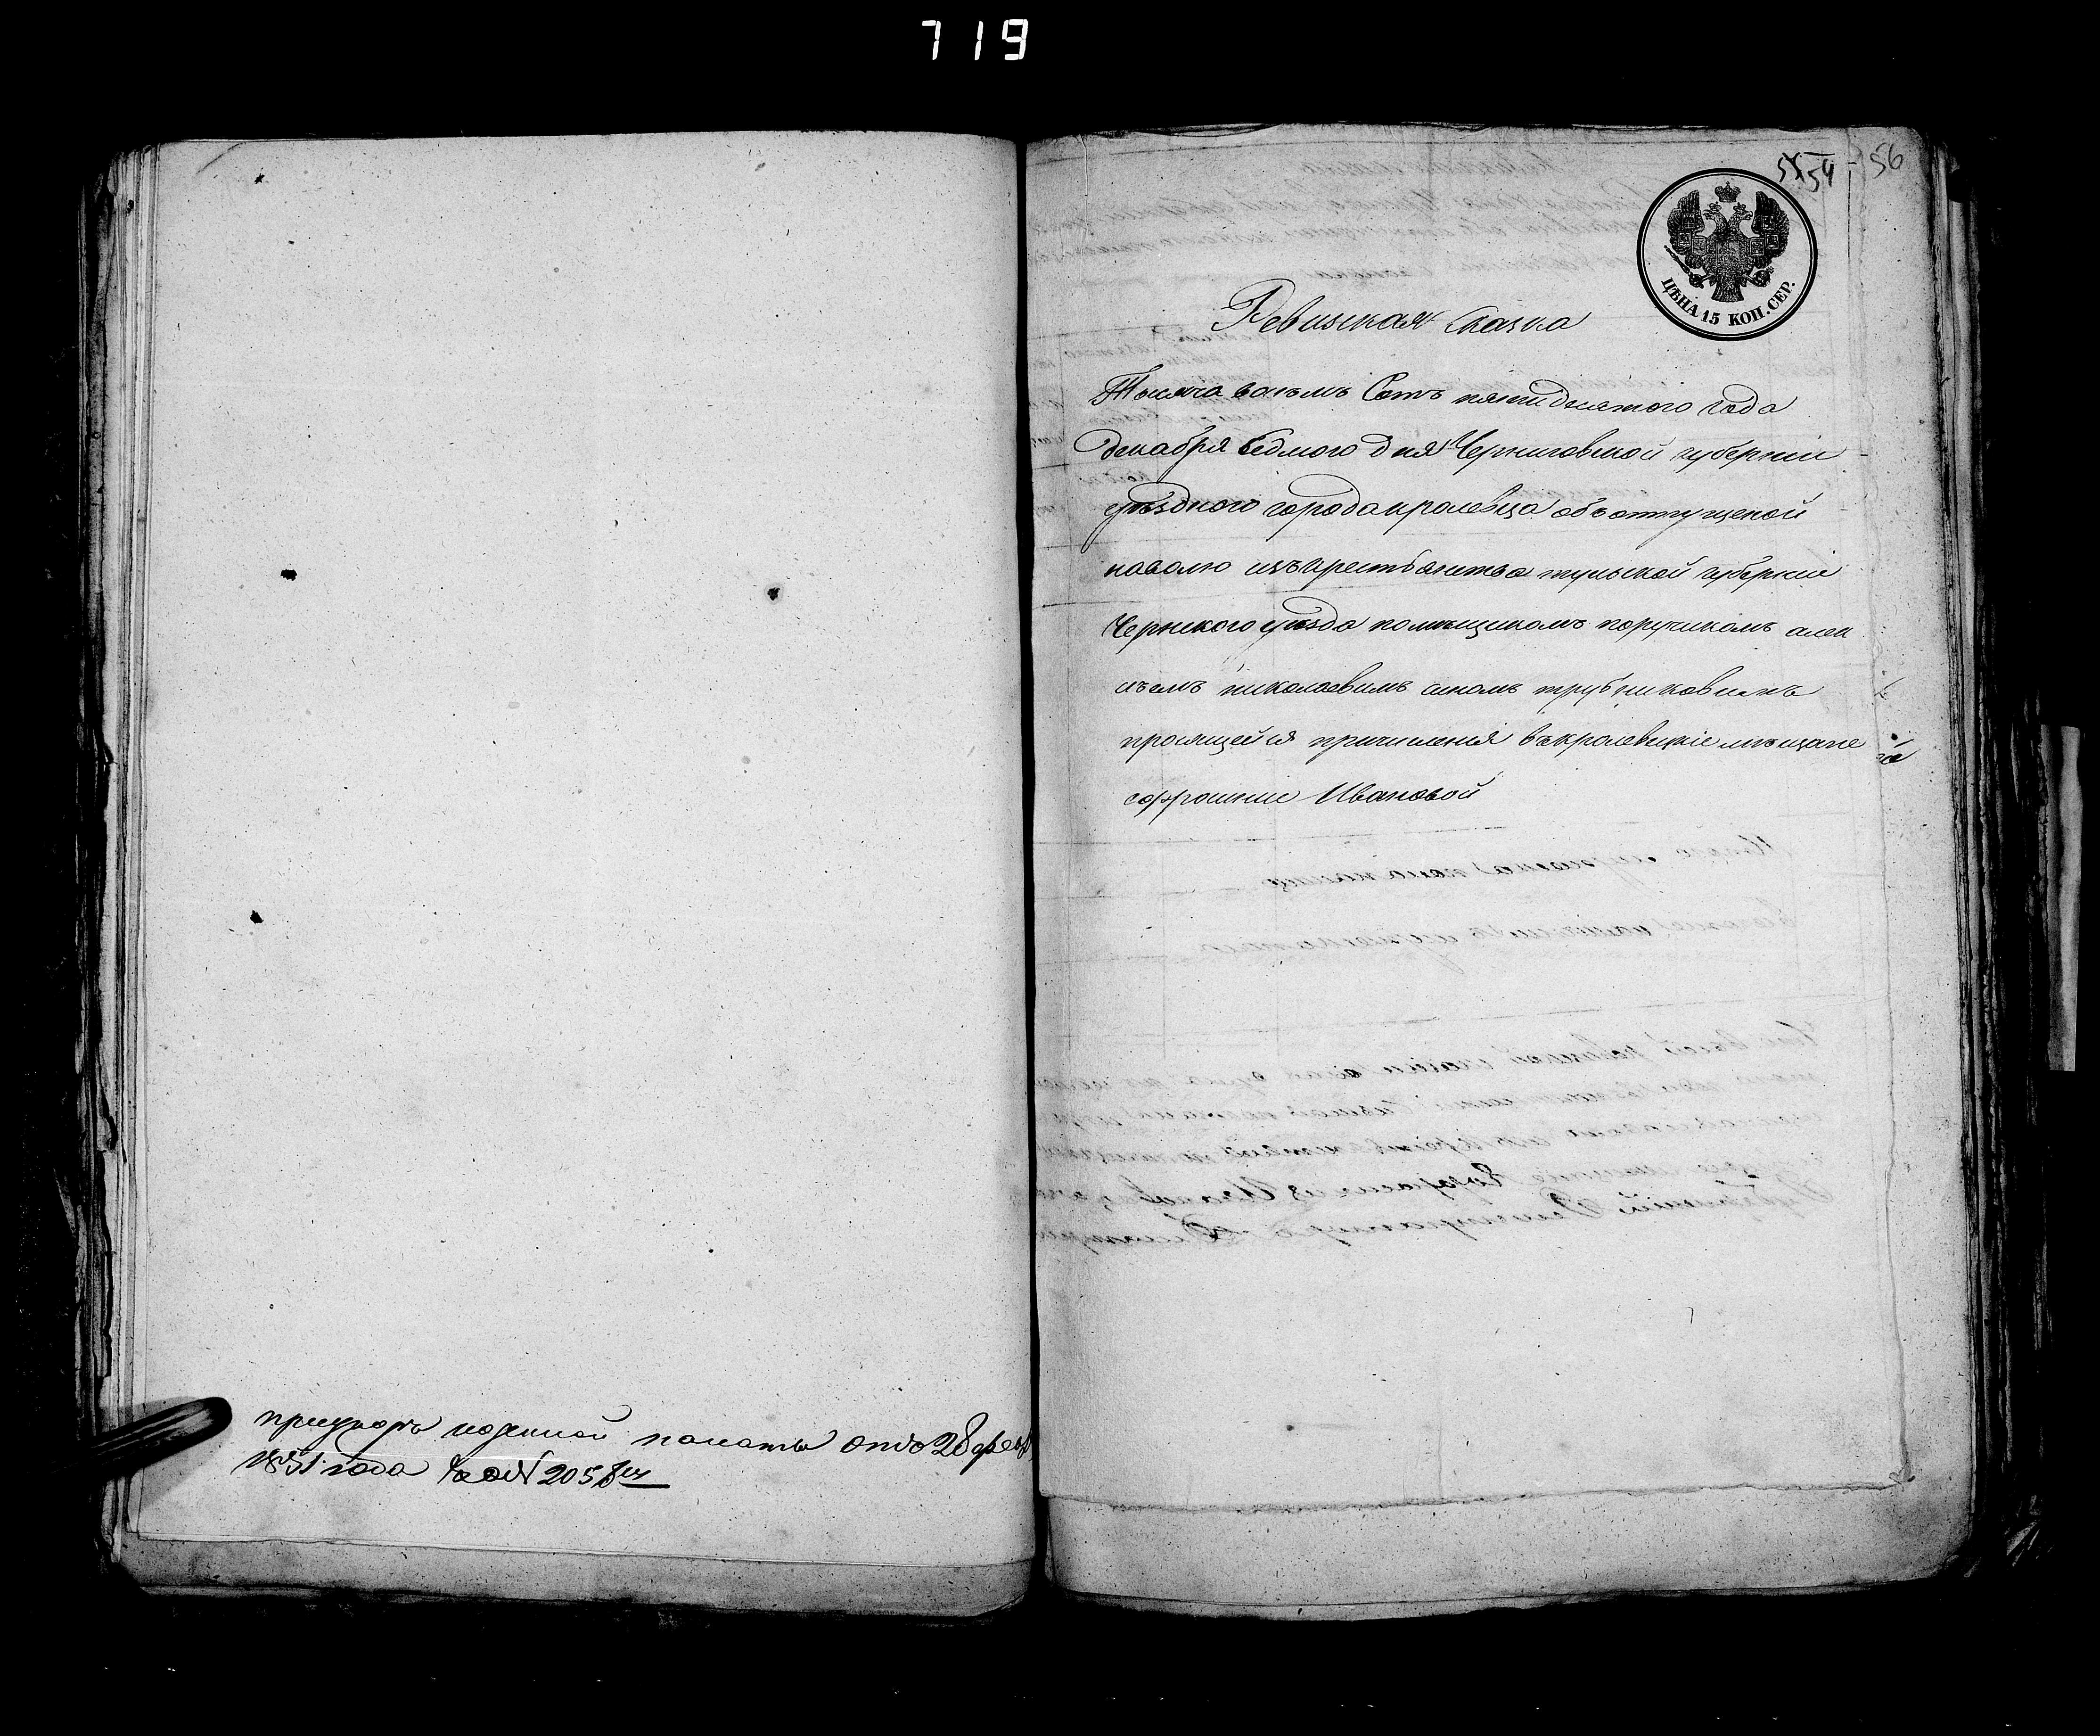 719
при указъ казенной палаты отъ 28 фев
1851 года за № 2058м
54 56
ЦѢНА 15 КОП. СЕР.
Ревизская Сказка
Тысяча восьмъ Сотъ пятидесятого года
декабря Седмого дня Черниговской губерніи
уѣздного города кролевца объ отпущеной
наволю изъ крестьянства тульской губерніи
Чернского уѣзда помѣщикомъ поручикомъ алек
сѣемъ николаевимъ сыномъ трубниковимъ
просящейся причисленія въ кролевецкіе мѣщане
Ивановой